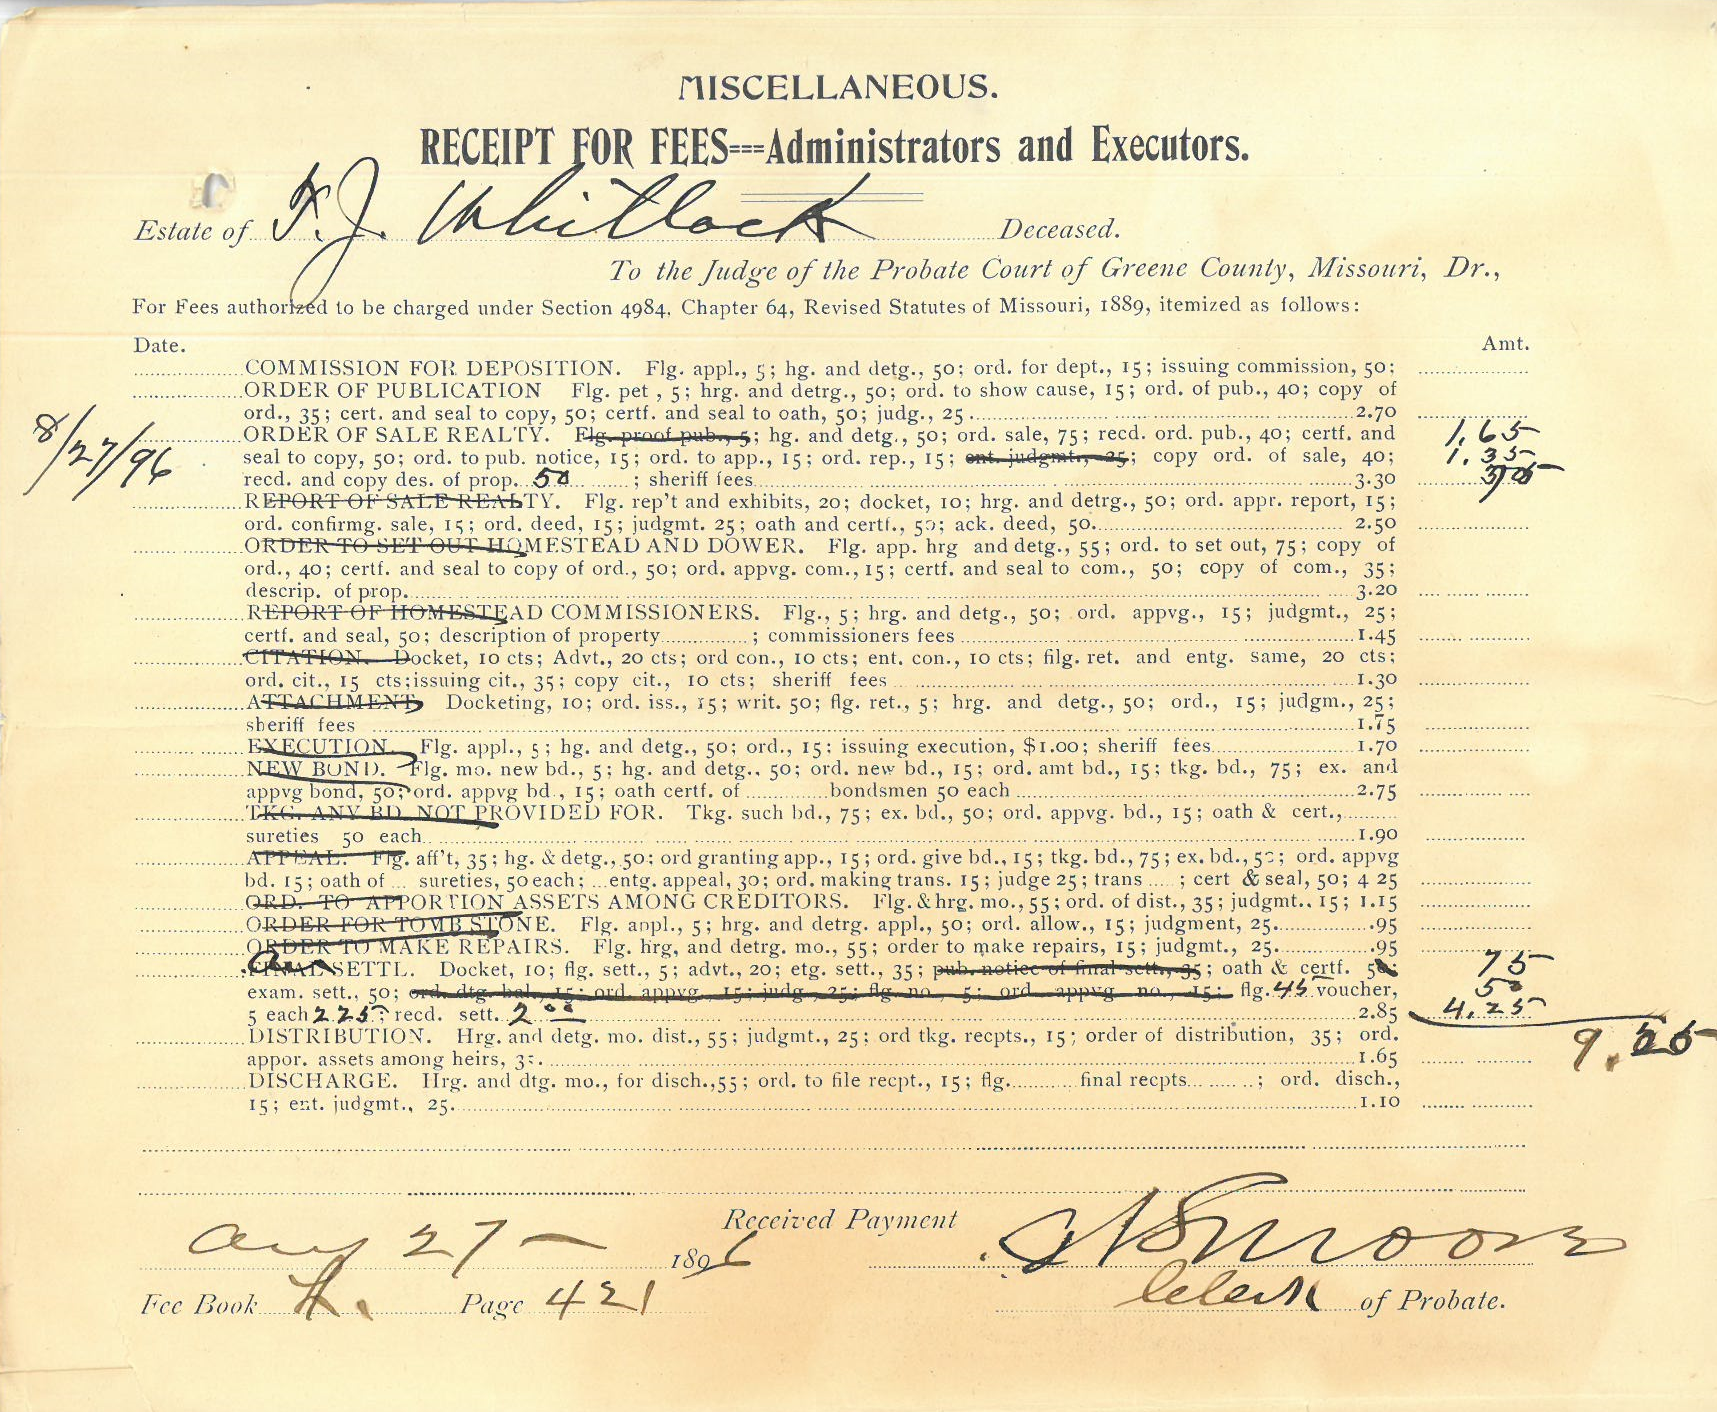 MISCELLANEOUS.
RECEIPT FOR FEES===Administrators and Executors.
Estate of F. J. Whitlock Deceased.
To the Judge of the Probate Court of Greene County, Missouri, Dr.,
For Fees authorized to be charged under Section 4984, Chapter 64, Revised Statutes of Missouri, 1889, itemized as follows:
Date. Amt.
COMMISSION FOR DEPOSITION. Flg. appl., 5; hg. and detg., 50; ord. for dept., 15; issuing commission, 50;
ORDER OF PUBLICATION Flg. pet , 5; hrg. and detrg., 50; ord. to show cause, 15; ord. of pub., 40; copy of
ord., 35; cert. and seal to copy, 50; certf. and seal to oath, 50; judg., 25 2.70
8/27/96 ORDER OF SALE REALTY. Flg. proof pub., 5; hg. and detg., 50; ord. sale, 75; recd. ord. pub., 40; certf. and 1.65
seal to copy, 50; ord. to pub. notice, 15; ord. to app., 15; ord. rep., 15; ent. judgmt., 25; copy ord. of sale, 40; 1.35
recd. and copy des. of prop. 50 ; sheriff fees 3.30
REPORT OF SALE REALTY. Flg. rep't and exhibits, 20; docket, 10; hrg. and detrg., 50; ord. appr. report, 15;
ord. confirmg. sale, 15; ord. deed, 15; judgmt. 25; oath and certf., 50; ack. deed, 50. 2.50
ORDER TO SET OUT HOMESTEAD AND DOWER. Flg. app. hrg and detg., 55; ord. to set out, 75; copy of
ord., 40; certf. and seal to copy of ord., 50; ord. appvg. com., 15; certf. and seal to com., 50; copy of com., 35;
descrip. of prop. 3.20
REPORT OF HOMESTEAD COMMISSIONERS. Flg., 5; hrg. and detg., 50; ord. appvg., 15; judgmt., 25;
certf. and seal, 50; description of property ; commissioners fees 1.45
CITATION. Docket, 10 cts; Advt., 20 cts; ord con., 10 cts; ent. con., 10 cts; filg. ret. and entg. same, 20 cts;
ord. cit., 15 cts;issuing cit., 35; copy cit., 10 cts; sheriff fees 1.30
ATTACHMENT, Docketing, 10; ord. iss., 15; writ. 50; flg. ret., 5; hrg. and detg., 50; ord., 15; judgm., 25;
sheriff fees 1.75
EXECUTION. Flg. appl., 5; hg. and detg., 50; ord., 15; issuing execution, $1.00; sheriff fees 1.70
NEW BOND. Flg. mo. new bd., 5; hg. and detg., 50; ord. new bd., 15; ord. amt bd., 15; tkg. bd., 75; ex. and
appvg bond, 50; ord. appvg bd., 15; oath certf. of bondsmen 50 each 2.75
TKG. ANY BD. NOT PROVIDED FOR. Tkg. such bd., 75; ex. bd., 50; ord. appvg. bd., 15; oath & cert.,
sureties 50 each 1.90
APPEAL. Flg. aff't, 35; hg. & detg., 50: ord granting app., 15; ord. give bd., 15; tkg. bd., 75; ex. bd., 50; ord. appvg
bd. 15; oath of ... sureties, 50 each; ...entg. appeal, 30; ord. making trans. 15; judge 25; trans ; cert & seal, 50; 4 25
ORD. TO APPORTION ASSETS AMONG CREDITORS. Flg. & hrg. mo., 55; ord. of dist., 35; judgmt.. 15; 1.15
ORDER FOR TOMB STONE. Flg. anpl., 5; hrg. and detrg. appl., 50; ord. allow., 15; judgment, 25. .95
ORDER TO MAKE REPAIRS. Flg. hrg, and detrg. mo., 55; order to make repairs, 15; judgmt., 25. .95
FINAL SETTL. Docket, 10; flg. sett., 5; advt., 20; etg. sett., 35; pub. notice of final sett., 35; oath & certf. 50; 75
exam. sett., 50; ord. dtg. bal., 15; ord. appvg., 15; judg., 25; flg. no., 5; ord. appvg. no., 15; flg. 45 voucher, 50
5 each 2.25; recd. sett. 2 00 2.85 4.25
DISTRIBUTION. Hrg. and detg. mo. dist., 55; judgmt., 25; ord tkg. recpts., 15; order of distribution, 35; ord.
appor. assets among heirs, 35. 1.65
DISCHARGE. Hrg. and dtg. mo., for disch.,55; ord. to file recpt., 15; flg. final recpts ; ord. disch.,
15; ent. judgmt., 25. 1.10
Received Payment
Aug 27 - 1896
Fee Book Page 421 Clerk of Probate.